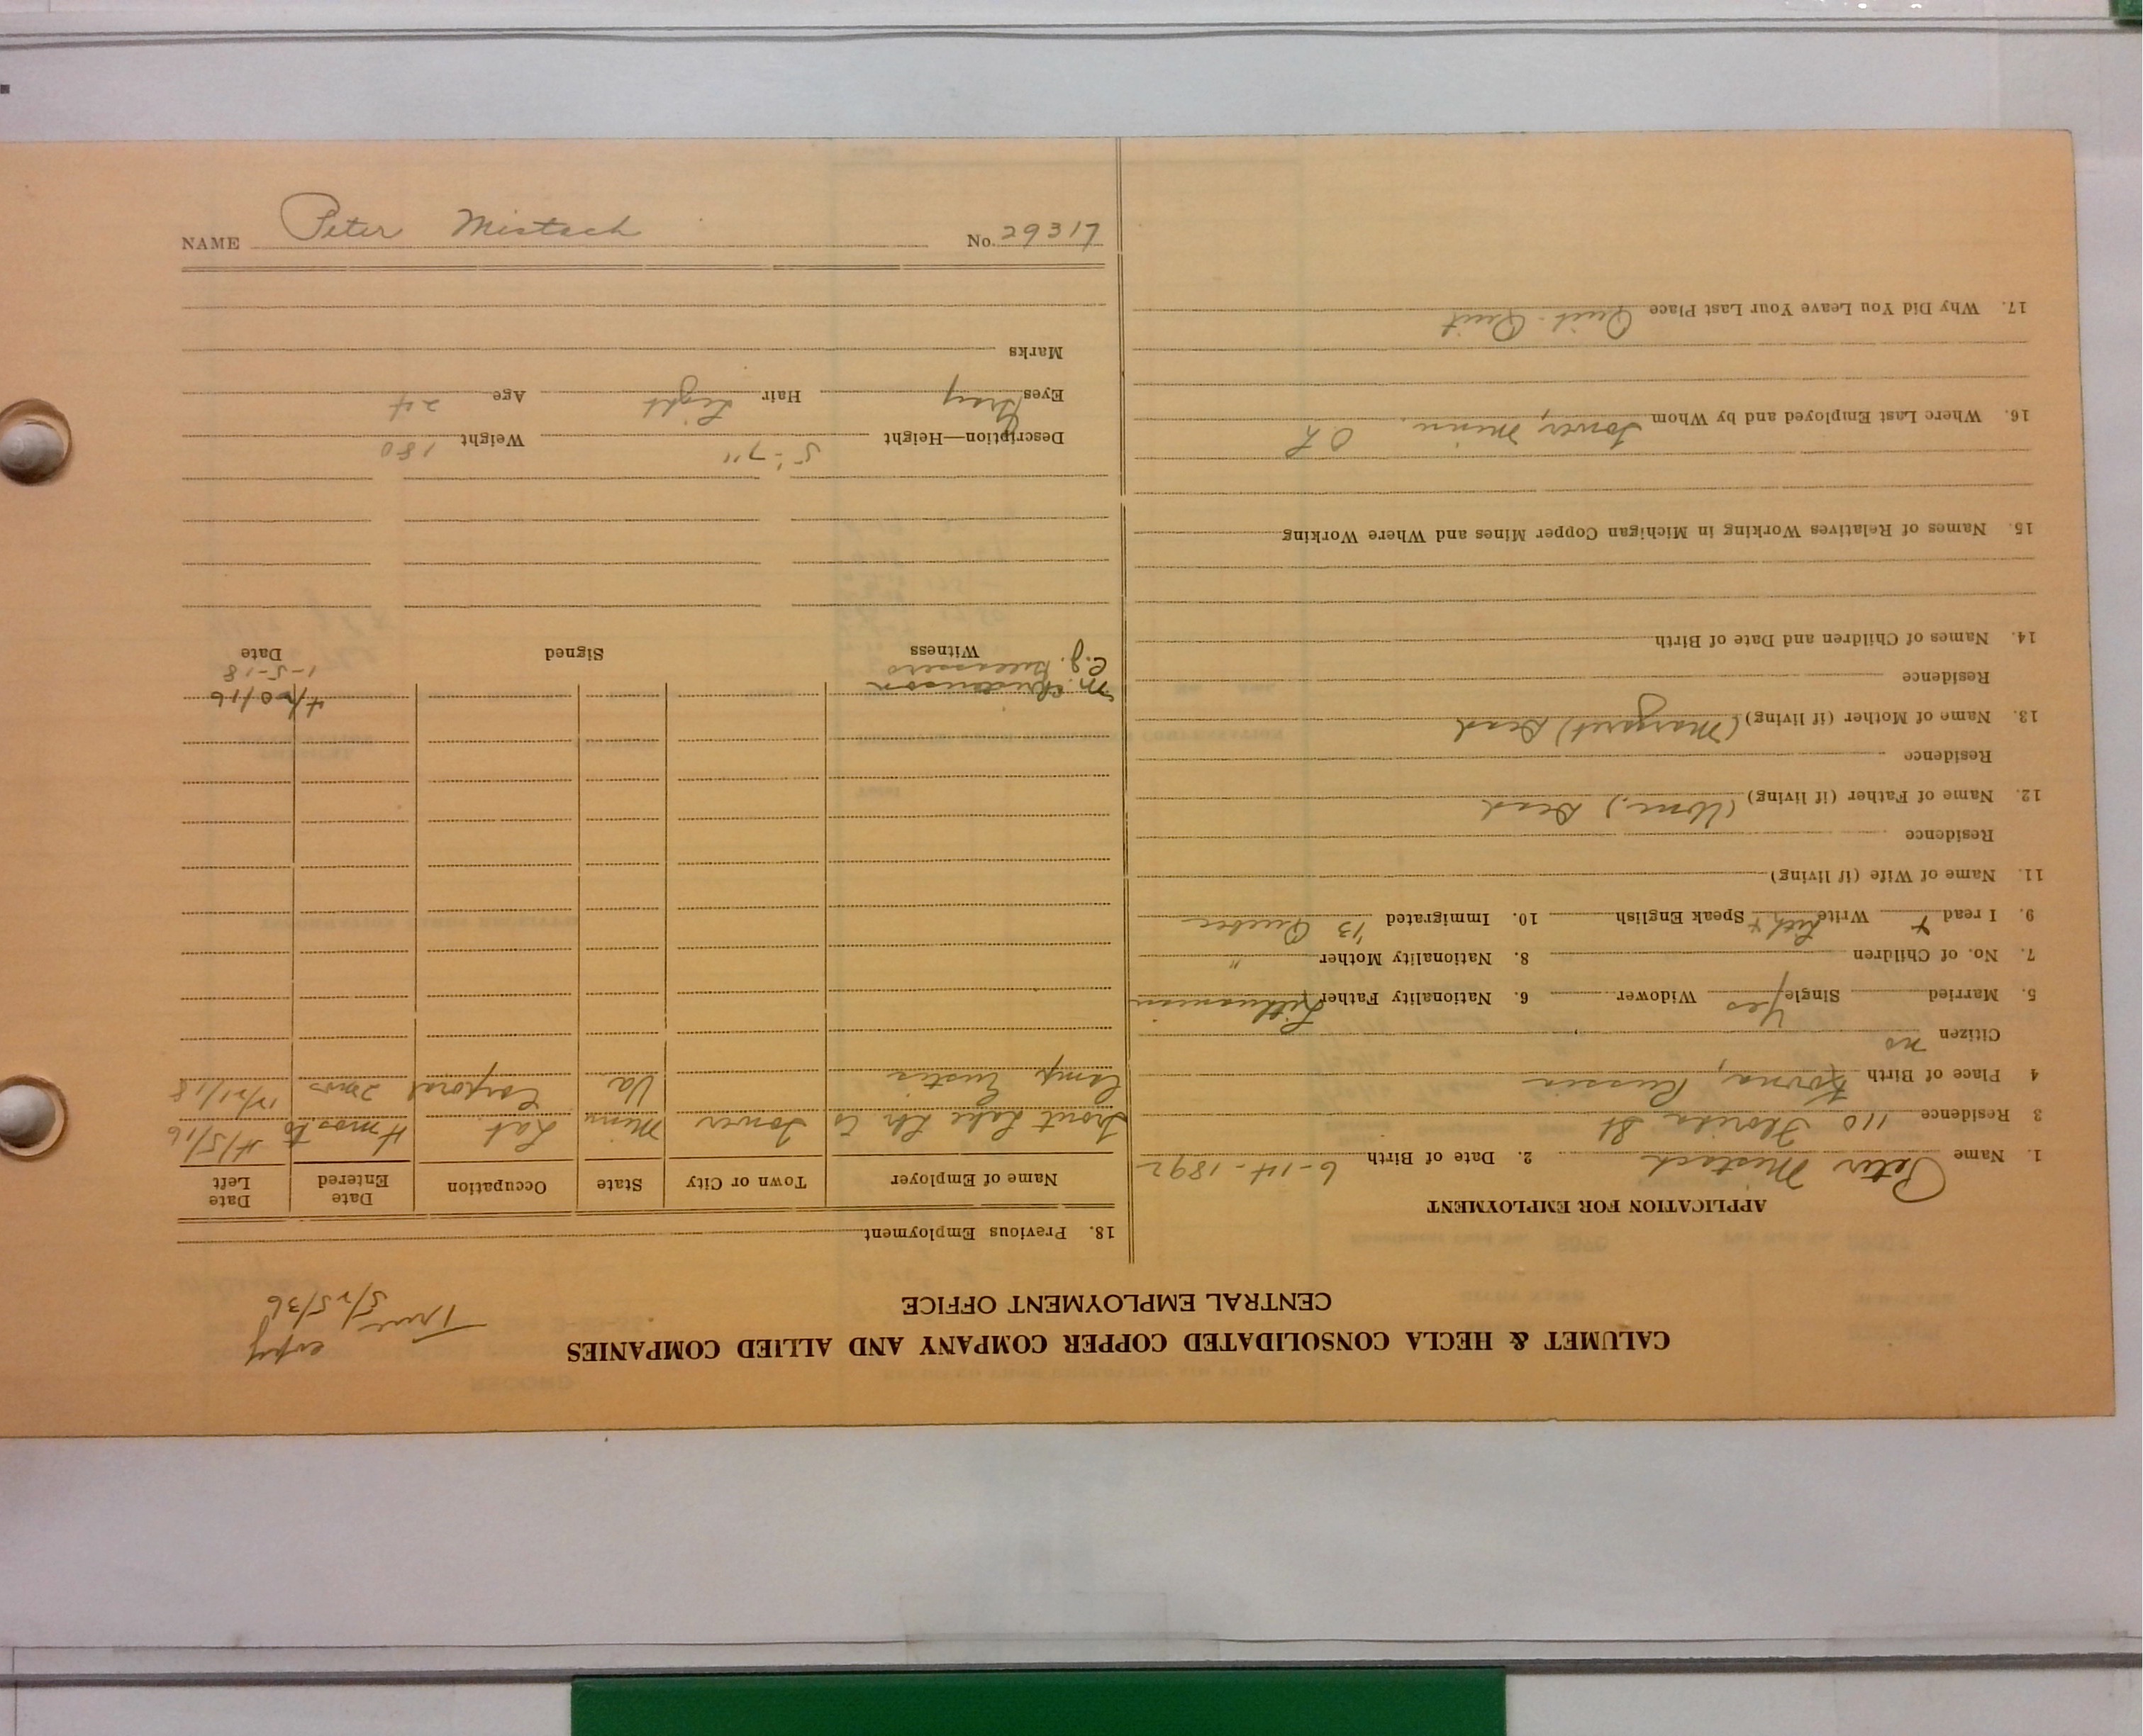 CALUMET & HECLA CONSOLIDATED COPPER COMPANY AND ALLIED COMPANIES
CENTRAL EMPLOYMENT OFFICE
True copy
5/25/36
APPLICATION FOR EMPLOYMENT
1. Name Peter Mistach 2. Date of Birth 6-14-1892
3 Residence 110 Florida St
4 Place of Birth Kovna, Russia
Citizen no
5. Married Single Yes Widower 6. Nationality Father Lithuanian
7. No. of Children 8. Nationality Mother "
9. I read + Write Lith + Speak English 10. Immigrated '13 Quebec
11. Name of Wife (if living)
Residence
12. Name of Father (if living) (Dom.) Dead
Residence
13. Name of Mother (if living) (Margaret) Dead
Residence
14. Names of Children and Date of Birth
15. Names of Relatives Working in Michigan Copper Mines and Where Working
16. Where Last Employed and by Whom Tower, Minn.
17. Why Did You Leave Your Last Place Quit - Quit
18. Previous Employment
Name of Employer Town or City State Occupation Date Entered Date Left
Trout Lake Lbr Co Tower Minn Lab 4 mos to 4/5/16
Camp Eustis Va. Corporal 2 mos 12/21/18
4/20/16
C.J. 1-5-18
Witness Signed Date
Description—Height 5'-7" Weight 180
Eyes Gray Hair Light Age 24
Marks
NAME Peter Mistach No. 29317